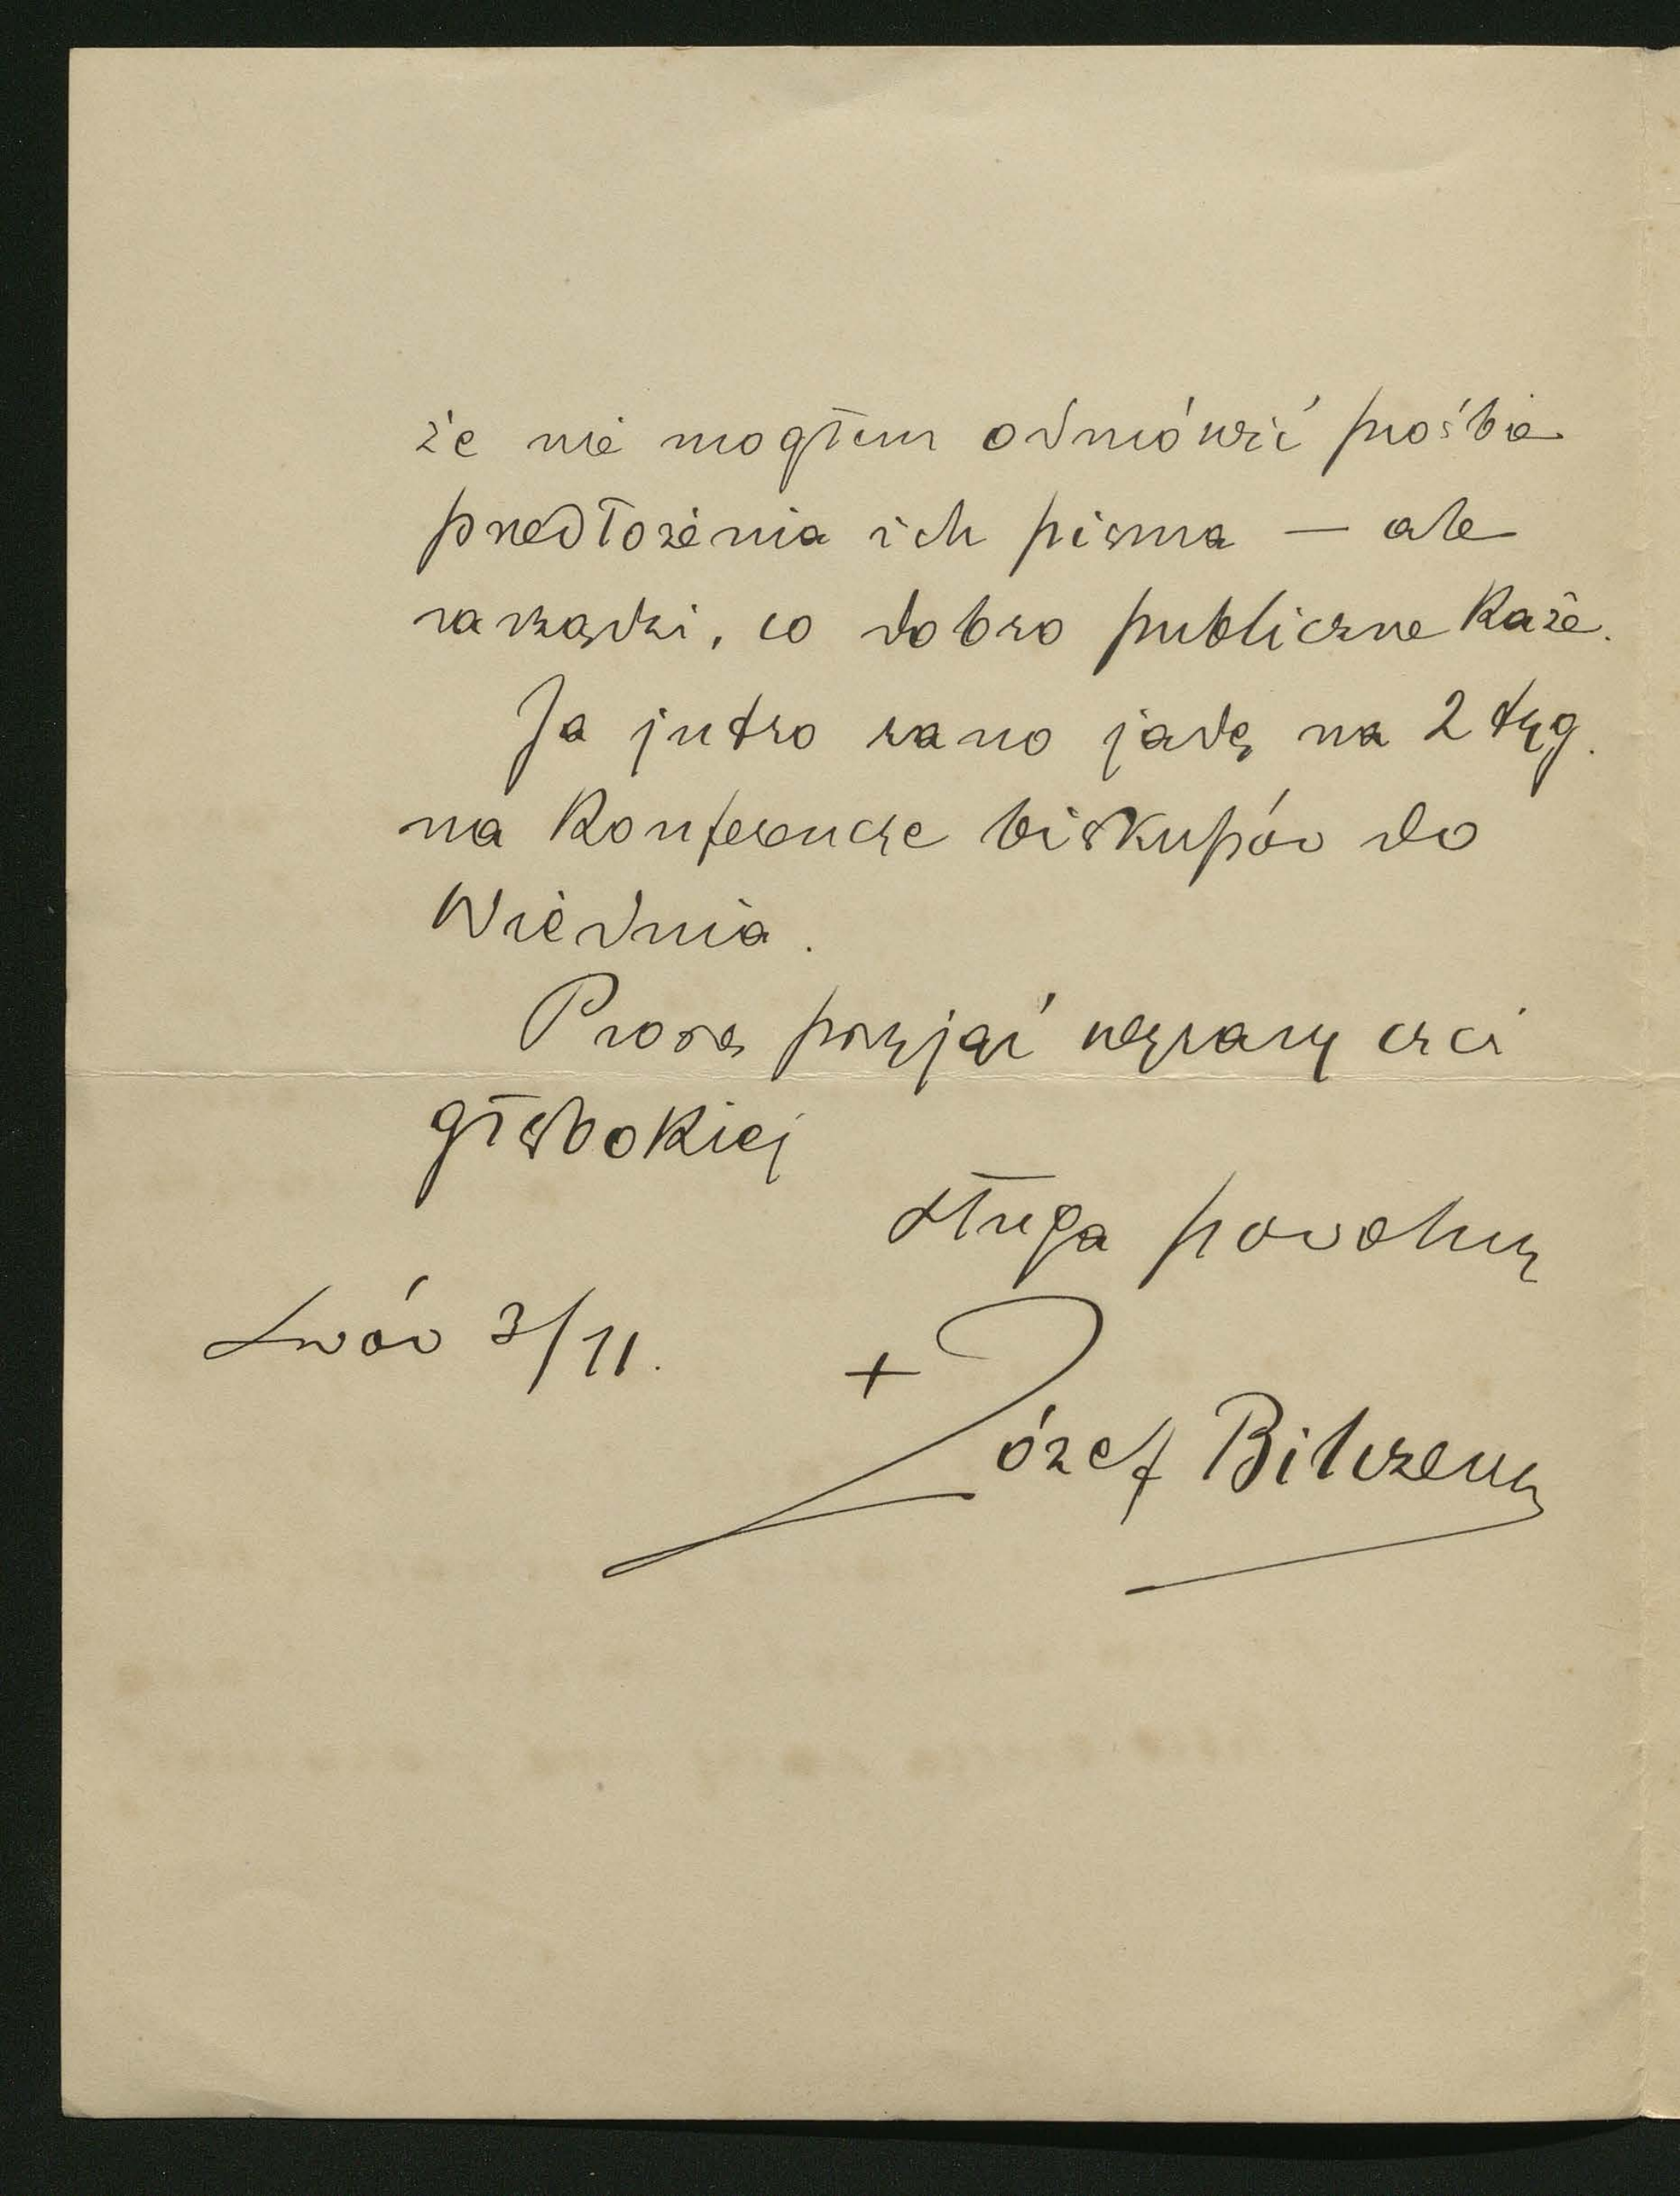 że nie mogłem odmówić prośbie
przedłożenia ich pisma — ale
zarządzi, co dobro publiczne każe.
Ja jutro rano jadę na 2 tyg.
na konferencye biskupów do
Wiednia.
Proszę przyjąć wyrazy czci
głębokiej
sługa powolny
Lwów 3/11.
+ Józef Bilczewski